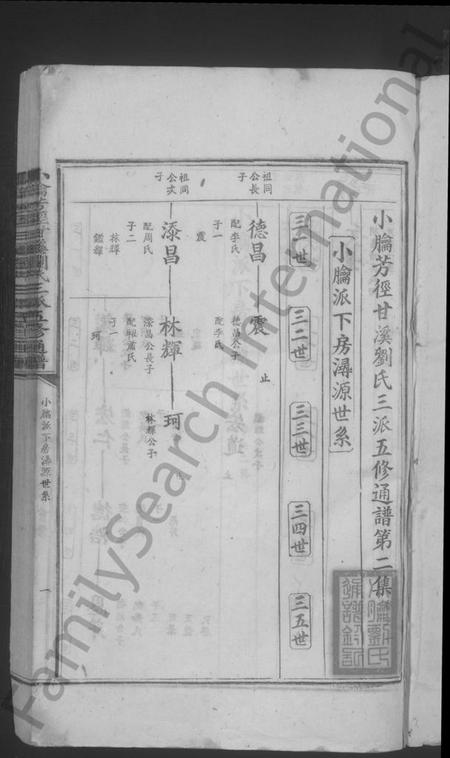 小腀芳徑甘溪劉氏三派五修通譜第二集
小腀派下房潯源世系
三一世
三二世
三三世
三四世
三五世
祖同公長子
德昌
配李氏
子一
震
震
德昌公子
配李氏
止
祖同公次子
添昌
配周氏
子二
林輝
鑑輝
林輝
添昌公長子
子一
珂
珂
林輝公子
小腀派下房潯源世系
一
FamilySearch International